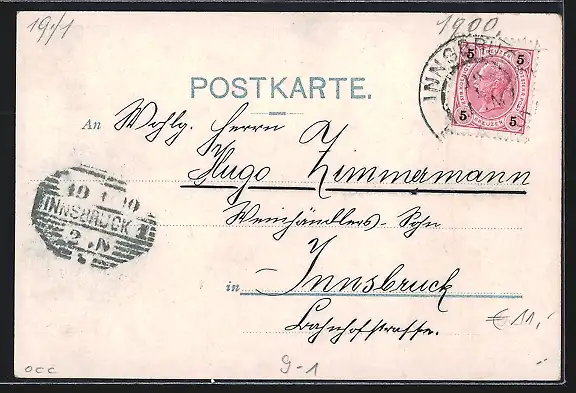 19/1 1900
POSTKARTE.
INNSBRUCK
5 5
5 KREUZER 5
An Wohlg. Herrn
Hugo Zimmermann
Weinhändlers-Sohn
in Innsbruck
Bahnhofstrasse.
INNSBRUCK 1
2 N
€ 11,-
occ
9-1